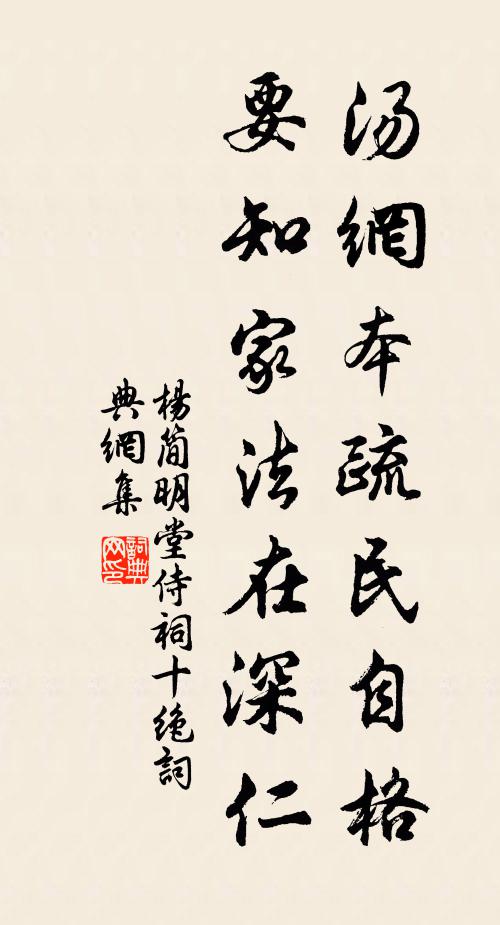 汤網本疏民自格
要知家法在深仁
楊简明堂侍祠十绝詞
典網集
詞典網印